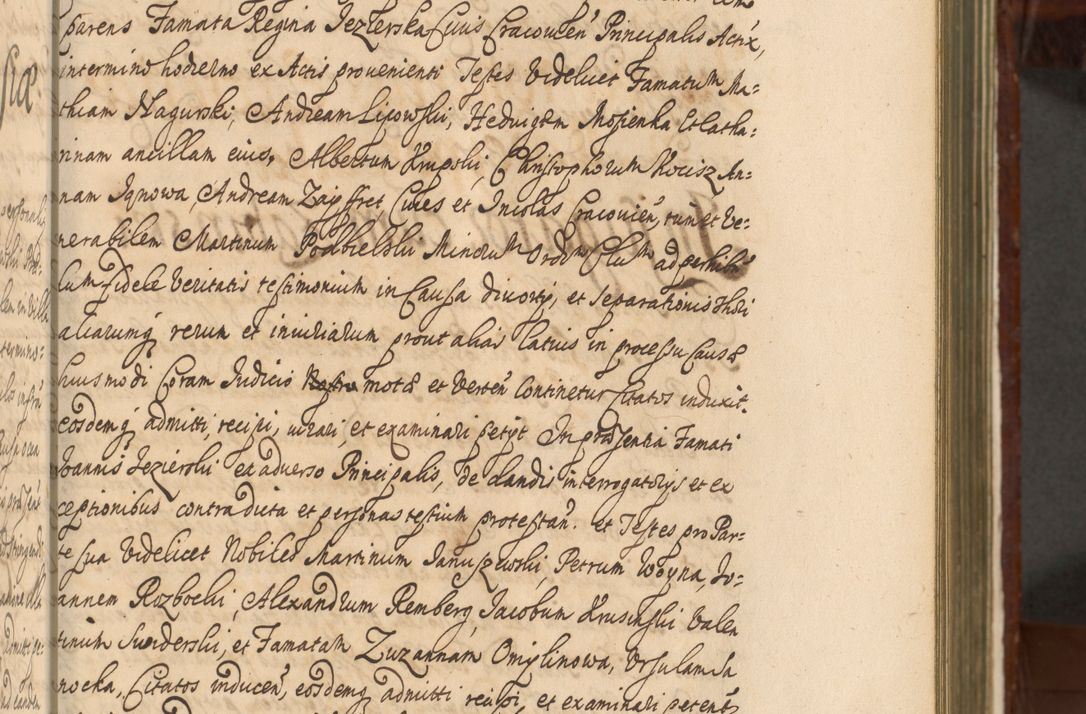 parens Famata Regina Jezierska Civis Cracovień Principalis Actix,
in termino hodierno ex Actis provenienti Testes Videlicet Famatum Ma=
thiam Nagurski, Andream Lipowski, Hedvigem Mosienka et Catha:
rinam ancillam eius, Albertum Krupski, Christophorum Kocisz An=
nam Jgnowa, Andream Zayffret, Cives et Incolas Cracovień, tum et Ve=
nerabilem Martinum Podbielski Minorum Ordinum Clum ad perhiben
dum fidele Veritatis testimonium in Causa divortij, et separationis thori
aliarumq́ rerum et iniuriarum prout alias latius in processu Causæ
huiusmodi Coram Judicio motæ et Verteñ Continetur Citatos induxit.
eosdemq́ admitti, recipi, iurari, et examinari petijt In præsentia Famati
Joannis Jezierski ex adverso Principalis, de dandis interrogatorijs et ex
ceptionibus contra dicta et personas testium protestań. et Testes pro Par=
te sua Videlicet Nobiles Martinum Januszewski, Petrum Woyna, Jo=
annem Rozbocki, Alexandrum Remberg, Jacobum Krusinski Valen
tinum Swiderski, et Famatam Zuzannam Omylinowa, Ursulam Sa
nocka, Citatos induceń, eosdemq́ admitti recipi, et examinari peteñ